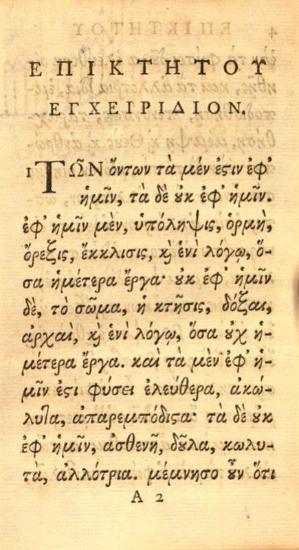 ΕΠΙΚΤΗΤΟΥ
ΕΓΧΕΙΡΙΔΙΟΝ,
1 ΤΩΝ ὄντων τὰ μέν ἐϛιν ἐφ'
ἡμῖν, τὰ δὲ ȣκ ἐφ' ἡμῖν.
ἐφ' ἡμῖν μὲν, ὑπόληψις, ὁρμὴ,
ὄρεξις, ἔκκλισις, ϗ ἑνὶ λόγῳ, ὅ-
σα ἡμέτερα ἔργα· ȣκ ἐφ' ἡμῖν
δὲ, τὸ σῶμα, ἡ κτῆσις, δόξαι,
ἀρχαὶ, ϗ ἑνὶ λόγῳ, ὅσα ȣχ ἡ-
μέτερα ἔργα. καὶ τὰ μὲν ἐφ' ἡ-
μῖν ἐϛὶ φύσει ἐλεύθερα, ἀκώ-
λυτα, ἀπαρεμπόδιϛα· τὰ δὲ ȣκ
ἐφ' ἡμῖν, ἀσθενῆ, δȣ͂λα, κωλυ-
τὰ, ἀλλότρια. μέμνησο ȣ͂ν ὅτι
A 2